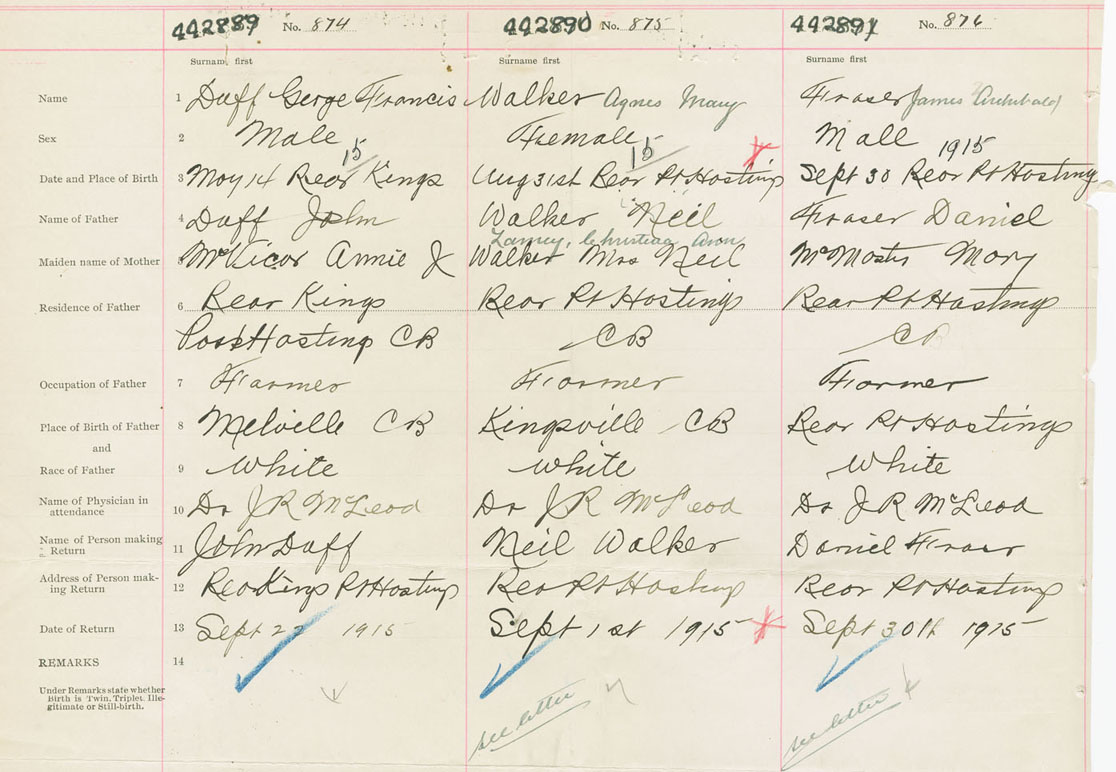 442889 No. 874 442890 No. 875 442891 No. 876
Surname first Surname first Surname first
Name 1 Duff George Francis Walker Agnes Mary Fraser James Archibald
Sex 2 Male Female Male
15 15 1915
Date and Place of Birth 3 May 14 Rear Kings Aug 31st Rear Pt Hastings Sept 30 Rear Pt Hastings
Name of Father 4 Duff John Walker Neil Fraser Daniel
Christina Ann
Maiden name of Mother 5 McVicar Annie J Walker Mrs Neil McMaster Mary
Residence of Father 6 Rear Kings Rear Pt Hastings Rear Pt Hastings
Port Hastings CB CB CB
Occupation of Father 7 Farmer Farmer Farmer
Place of Birth of Father 8 Melville CB Kingsville CB Rear Pt Hastings
and
Race of Father 9 White White White
Name of Physician in
attendance 10 Dr J R McLeod Dr J R McLeod Dr J R McLeod
Name of Person making
Return 11 John Duff Neil Walker Daniel Fraser
Address of Person mak-
ing Return 12 Rear Kings Pt Hastings Rear Pt Hastings Rear Pt Hastings
Date of Return 13 Sept 22 1915 Sept 1st 1915 Sept 30th 1915
REMARKS 14
Under Remarks state whether
Birth is Twin, Triplet, Ille-
gitimate or Still-birth.
see letter see letter